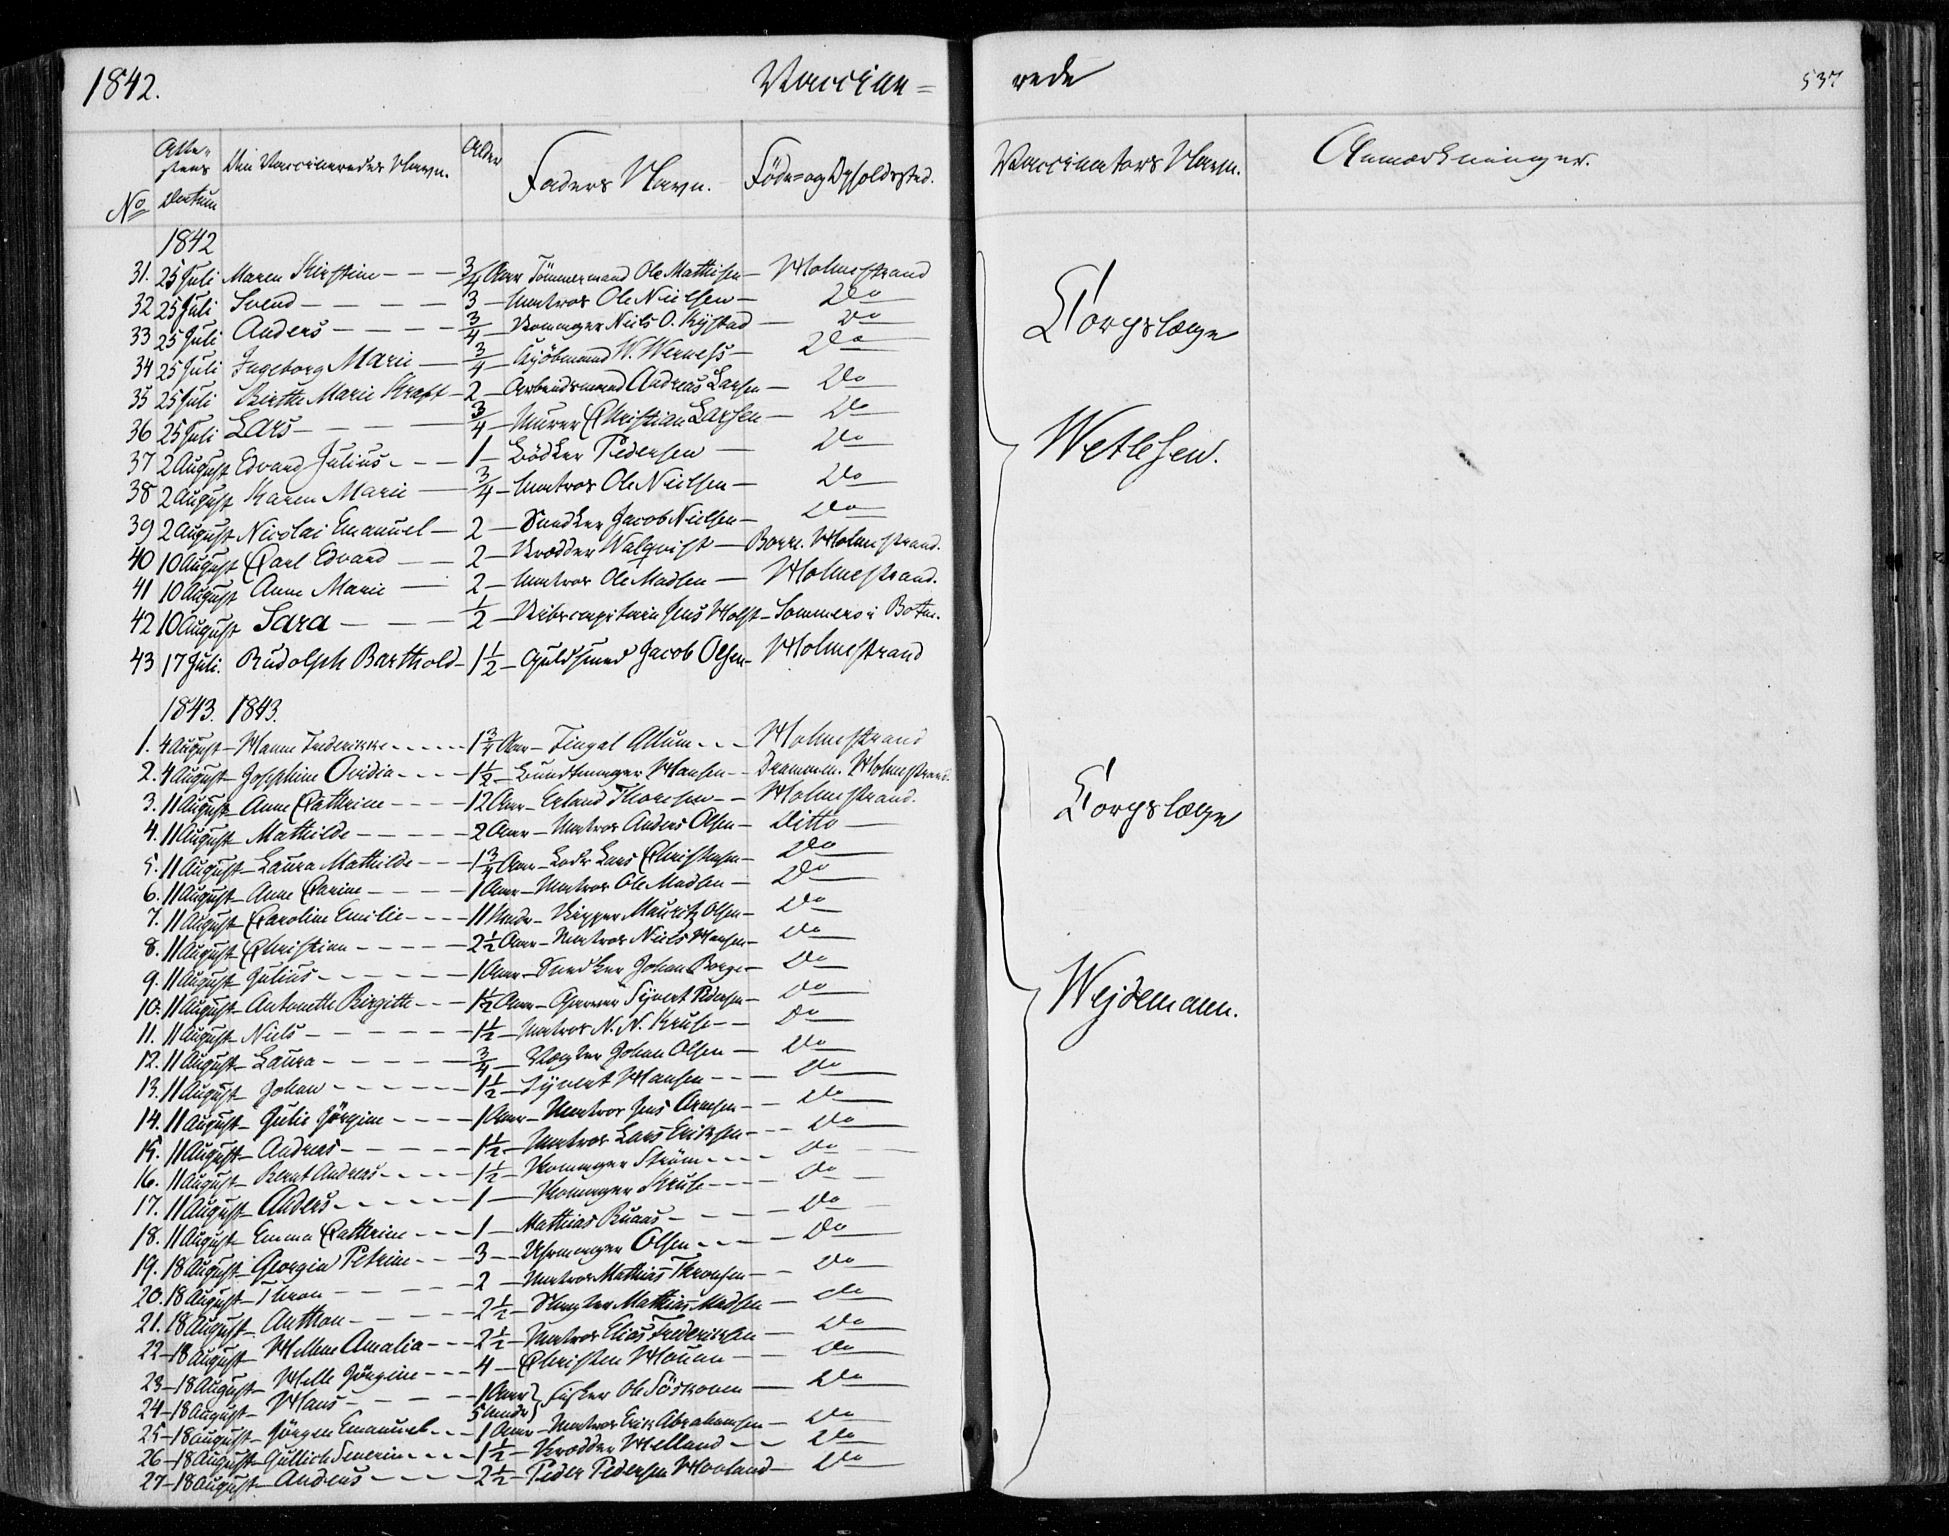 1842. Vaccine=rede 537
No Attestens Datum Den Vaccineredes Navn. Alder Faders Navn. Føde- og Opholdssted. Vaccinators Navn. Anmærkninger.
1842
31. 25 Juli Maren Kirstine - - - 3/4 Aar Tömmermand Ole Mathisen - Holmestrand
32 25 Juli Svend - - - - 3 - Matros Ole Nielsen - Do
33 25 Juli Anders - - - - 3/4 - Skomager Niels O. Kystad - Do
34 25 Juli Ingeborg Marie - 3/4 - Kjöbmand W. Werness - Do
35 25 Juli Birthe Marie Kraft - 2 - Arbeidsmand Andreas Larsen - Do
36 25 Juli Lars - - - - 3/4 - Murer Christian Larsen - Do
37 2 August Edvard Julius - - - 1 - Bödker Pedersen - Do
38 2 August Karen Marie - 3/4 - Matros Ole Nielsen - Do
39 2 August Nicolai Emanuel - 2 - Snedker Jacob Nielsen - Do
40 10 August Carl Edvard - - 2 - Skrædder Walqvist - Borre. Holmestrand.
41 10 August Anne Marie - 2 - Matros Ole Madsen - Holmestrand.
42 10 August Sara - - - 1/2 - Skibscapitain Jens Holst - Sommero i Botne.
43 17 Juli. Rudolph Barthold - 1 1/2 - Guldsmed Jacob Olsen - Holmestrand
Corpslæge
Wetlesen.
1843. 1843.
1. 4 August - Hanne Frederikke - - - - 1 3/4 Aar - Fingal Allum - - - Holmestrand
2. 4 August - Josephine Ovidia - - - - 1 1/2 - Bundtmager Hansen - - Drammen. Holmestrand
3. 11 August - Anne Cathrine - - - - 12 Aar - Erland Thoresen - - Holmestrand.
4. 11 August - Mathilde - - - - - 2 Aar - Matros Anders Olsen - Ditto
5. 11 August - Laura Mathilde - - - 1 3/4 Aar - Lods Lars Christensen - Do
6. 11 August - Anne Carine - - - - 1 Aar - Matros Ole Madsen - Do
7. 11 August - Caroline Emilie - - - - 11 Mdr - Skipper Mauritz Olsen - Do
8. 11 August - Christian - - - - - 2 1/2 Aar - Matros Niels Hansen - Do
9. 11 August - Julius - - - - - - 1 Aar - Snedker Johan Borge - Do
10. 11 August - Antonette Birgitte - - - 1 1/2 Aar - Garver Syvert Pedersen - Do
11. 11 August - Niels - - - - - - 1 1/2 - Matros N. N. Kruse - - Do
12. 11 August - Laura - - - - - 3/4 - Vægter Johan Olsen - Do
13. 11 August - Johan - - - - - - 1 1/2 - Syvert Hansen - - - Do
14. 11 August - Julie Jörgine - - - - 1 Aar - Matros Jens Arnesen - - Do
15. 11 August - Andreas - - - - - 1 1/2 - Matros Lars Eriksen - - - Do
16. 11 August - Bernt Andreas - - - - - 1 1/2 - Skomager Ström - - - - Do
17. 11 August - Anders - - - - - - 1 - Skomager Kruse - - - - Do
18. 11 August - Emma Cathrine - - - 1 - Mathias Buaas - - - - Do
19. 18 August - Georgia Petrine - - - 3 - Uhrmager Olsen - - - - Do
20. 18 August - Thron - - - - - 2 - Matros Mathias Thronsen - - Do
21. 18 August - Anthon - - - - - 2 1/2 - Slagter Mathias Madsen - Do
22 - 18 August - Hellene Amalia - - - 2 1/2 - Matros Elias Frederiksen - Do
23 - 18 August - Helle Jörgine - - - 4 - Christen Houan - - Do
24 - 18 August - Hans - - - - - 1 Aar 5 Mdr } Fisker Ole Töskoven - Do
25 - 18 August - Jörgen Emanuel - - - 1 Aar - Matros Erik Abrahamsen - Do
26 - 18 August - Gullich Severin - - - - 1 1/2 - Skrædder Helland - - Do
27 - 18 August - Andreas - - - - - 2 1/2 - Peder Pedersen Hovland - Do
Corpslæge
Wejdemann.